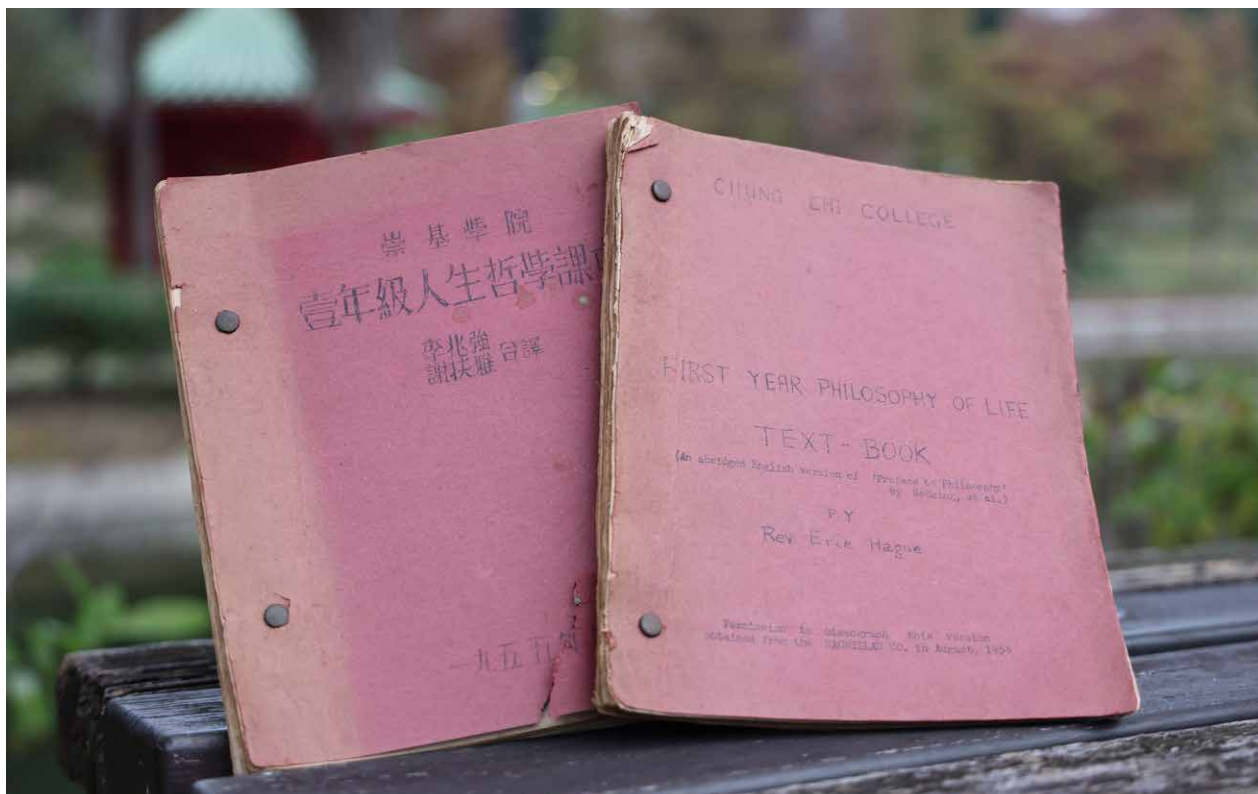 崇基學院
壹年級人生哲學課
李兆強
謝扶雅 合譯
一九五五年
CHUNG CHI COLLEGE
FIRST YEAR PHILOSOPHY OF LIFE
TEXT-BOOK
(An abridged English version of 'Preface to Philosophy'
by Hocking, et al.)
BY
Rev Eric Hague
Permission to mimeograph this version
obtained from the MACMILLAN CO. in August, 1954